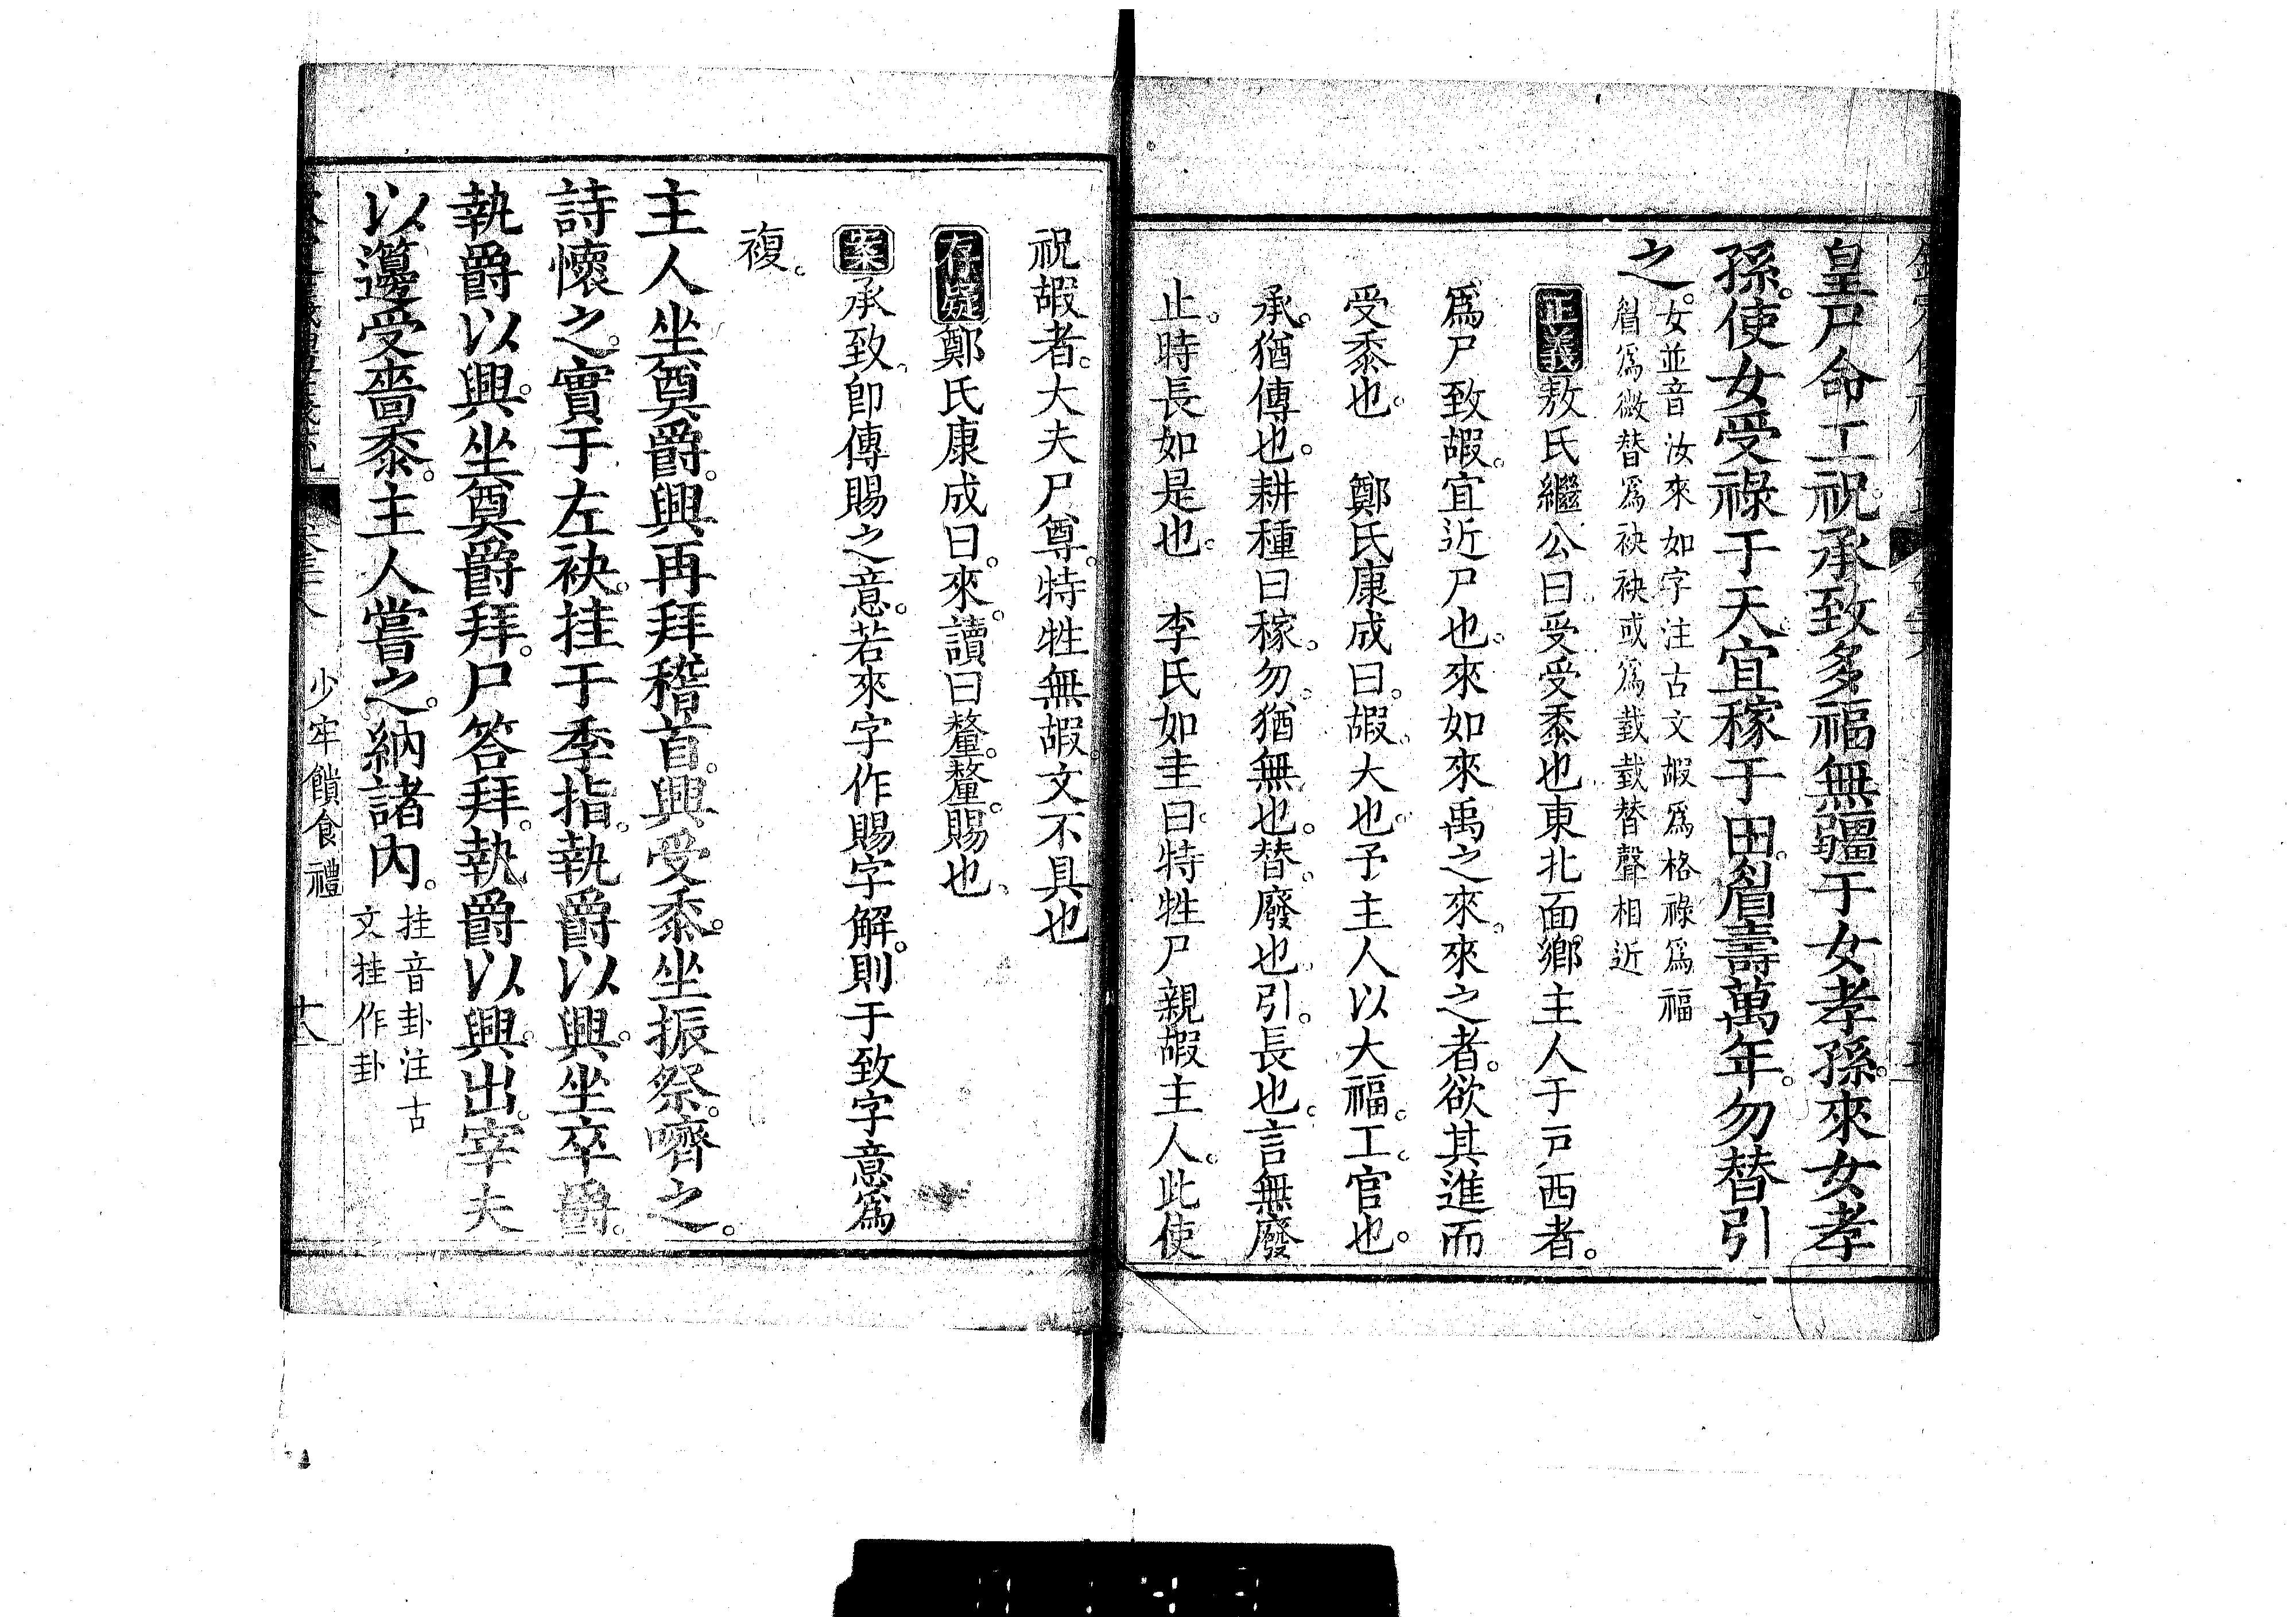 皇尸命工祝。承致多福無疆于女孝孫。來女孝
孫。使女受祿于天。宜稼于田。眉壽萬年。勿替引
之。
女並音汝來如字注古文嘏爲格祿爲福
眉爲微替爲袂袂或爲㦸㦸替聲相近
正義敖氏繼公曰受受黍也東北面鄉主人于戸西者。
爲尸致嘏。宜近尸也。來如來禹之來。來之者。欲其進而
受黍也。 鄭氏康成曰。嘏、大也。予主人以大福。工。官也。
承。猶傳也。耕種曰稼。勿。猶無也。替。廢也。引。長也。言無廢
止。時長如是也。 李氏如圭曰。特牲尸親嘏主人。此使
祝嘏者。大夫尸尊。特牲無嘏。文不具也
存疑鄭氏康成曰。來。讀曰釐。釐。賜也
案承致、卽傳賜之意。若來字作賜字解。則于致字意爲
複。
主人坐奠爵。興再拜稽首。興受黍。坐振祭。嚌之。
詩懷之。實于左袂。挂于季指。執爵以興。坐卒爵。
執爵以興。坐奠爵拜。尸答拜。執爵以興。出。宰夫
以籩受嗇黍。主人嘗之。納諸內。
挂音卦注古
文挂作卦
少牢饋食禮
十八